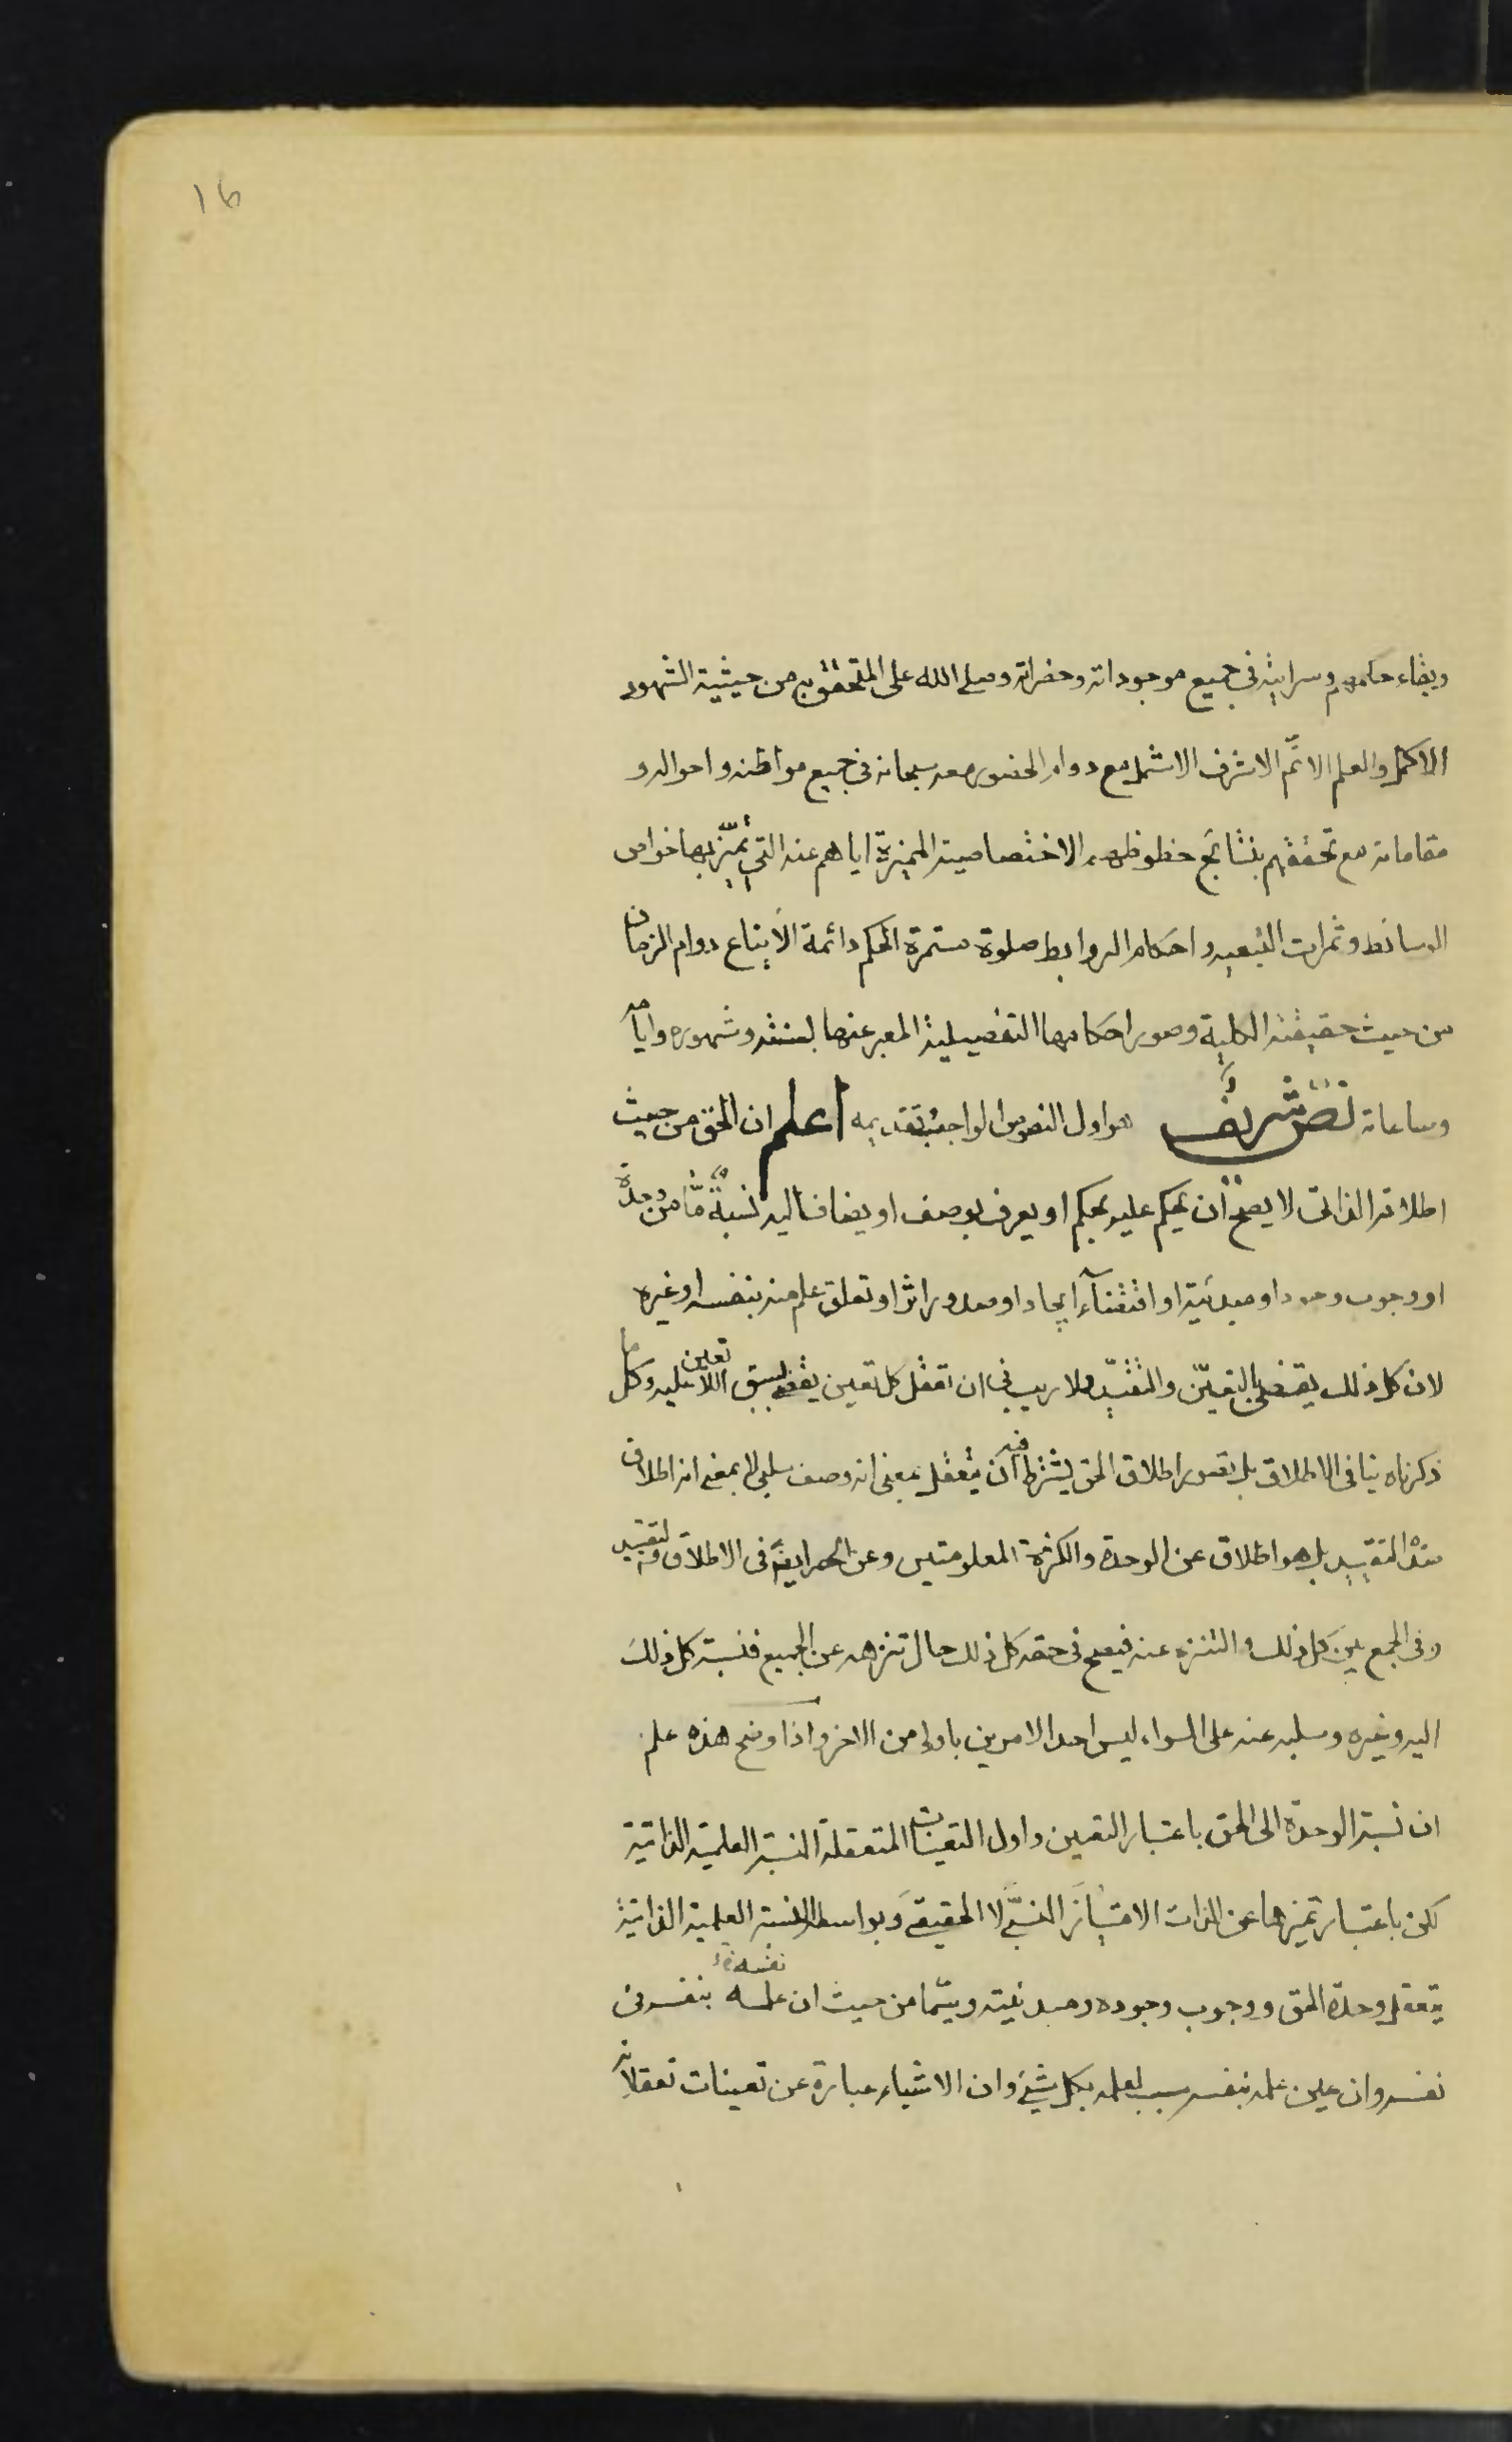 ١٦
وبقاء حكمهم وسرايته فى جميع موجوداته وحضراته وصلى الله على المتحققين به من حيثية الشهود
الاكمل والعلم الاتّم الاشرف الاشمل مع دوام الحضور معه سبحانه فى جميع مواطنه واحواله و
مقاماته مع تحققهم بنتائج حظوظهم الاختصاصية المميزة اياهم عنه التى تميّز بها خواص
الوسائط وثمرات التبعية واحكام الروابط صلوة مستمرة الحكم دائمة الايناع دوام الزمان
من حيث حقيقته الكلية وصور احكامها التفصيلية المعبر عنها بسنته وشهوره وايامه
وساعاته نصّ شريف هو اول النصوص الواجب تقديمه اعلم ان الحق من حيث
اطلاقه الذاتى لا يصح ان يحكم عليه بحكم او يعرف بوصف او يضاف اليه نسبة مّا من وحدة
او وجوب وجود او مبدئية او اقتضآء ايجاد او صدور اثر او تعلق علم منه بنفسه او غيره
لان كل ذلك يقتضى بالتعيّن والتقيّد ولا ريب فى ان تعقل كل تعين يقضى بسبق اللا تعين عليه وكل ما
ذكرناه ينافى الاطلاق بل تصور اطلاق الحق يشترط فيه ان يتعقل بمعنى انه وصف سلبى لا بمعنى انه اطلاق
ضدّه التقييد بل هو اطلاق عن الوحدة والكثرة المعلومتين وعن الحصر ايضًا فى الاطلاق والتقييد
وفى الجمع بين كل ذلك والتنزه عنه فيصح فى حقه كل ذلك حال تنزهه عن الجميع فنسبة كل ذلك
اليه وغيره وسلبه عنه على السواء ليس احد الامرين باولى من الاخر واذا وضح هذه علم
ان نسبة الوحدة الى الحق باعتبار التعين واول التعينات المتعقلة النسبة العلمية الذاتية
لكن باعتبار تميزها عن الذات الامتياز النسبىّ لا الحقيقى وبواسطة النسبة العلمية الذاتية
يتعقل وحدة الحق ووجوب وجوده ومبدئيته وسيّما من حيث ان علمه نفسه بنفسه فى
نفسه وان عين علمه بنفسه سبب لعلمه بكل شيئ وان الاشياء عبارة عن تعينات تعقلاته